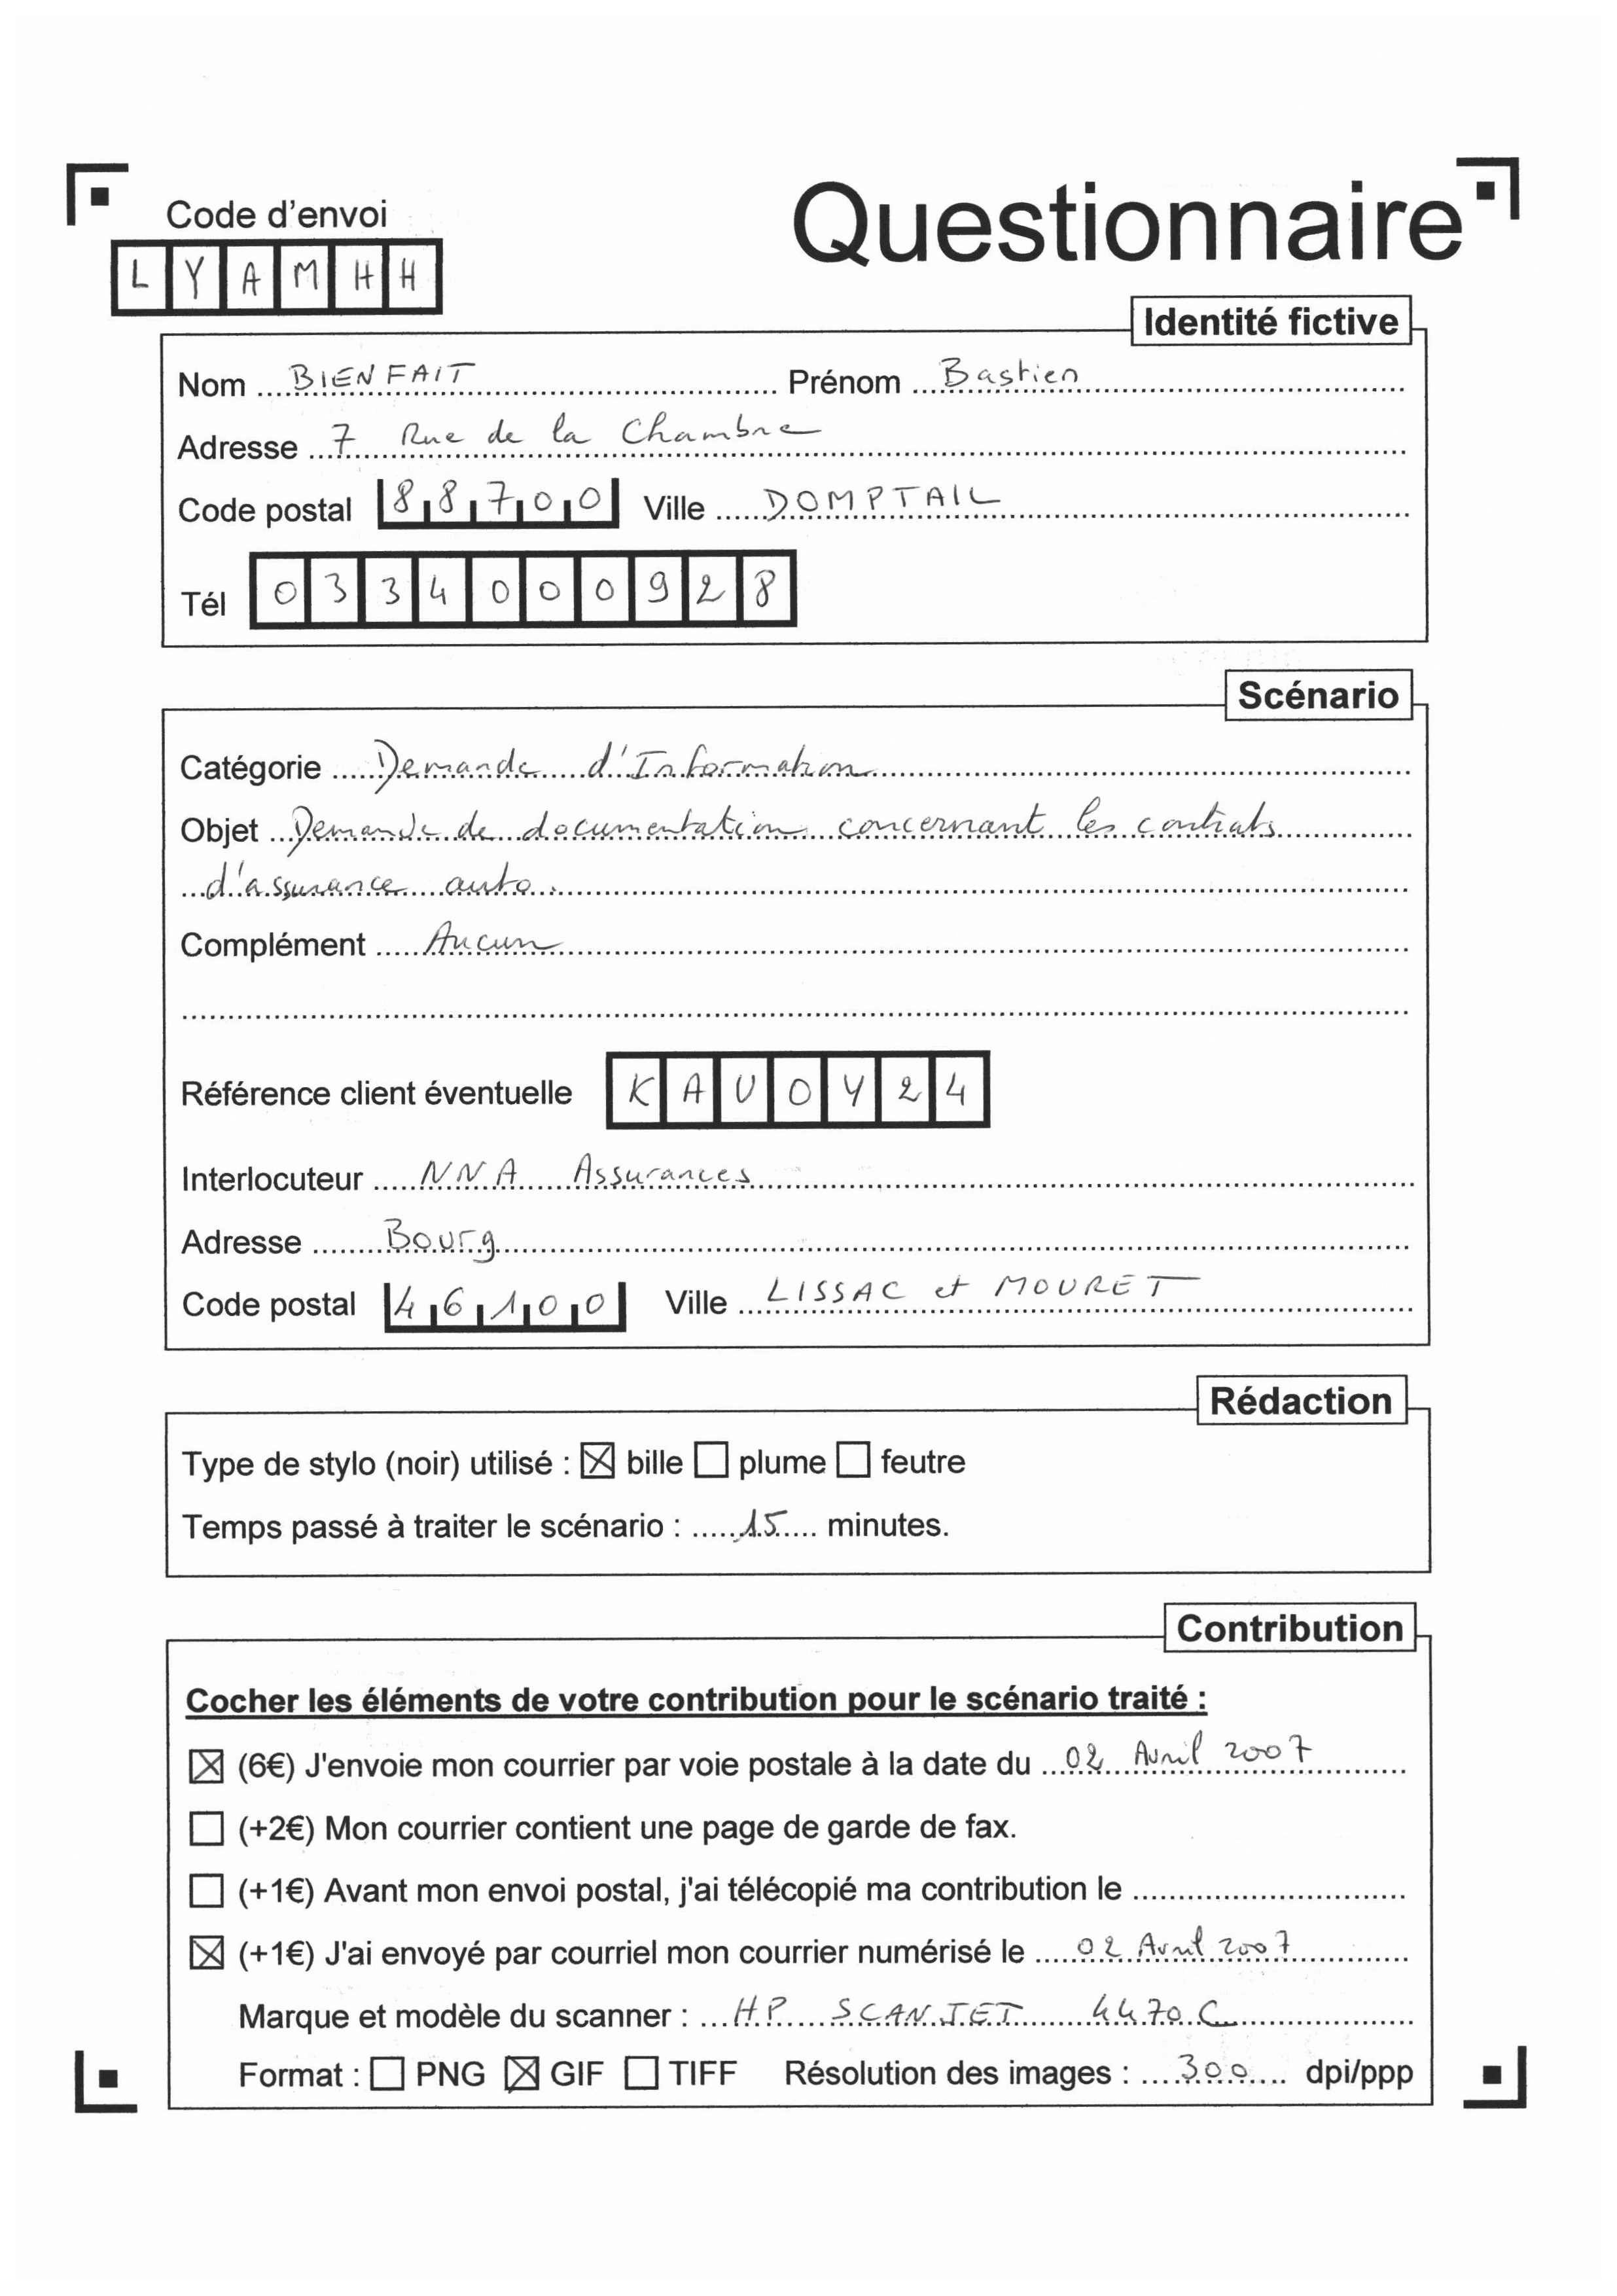 Questionnaire
Code d'envoi
L Y A M H H
Identité fictive
Nom BIENFAIT Prénom Bastien
Adresse 7 Rue de la Chambre
Code postal 88700 Ville DOMPTAIL
Tél 0334000928
Scénario
Catégorie Demande d'Information
Objet Demande de documentation concernant les contrats
d'assurance auto.
Complément Aucun
Référence client éventuelle KAVOY24
Interlocuteur NNA Assurances
Adresse Bourg
Code postal 46100 Ville LISSAC et MOURET
Rédaction
Type de stylo (noir) utilisé : ☒ bille ☐ plume ☐ feutre
Temps passé à traiter le scénario : 15 minutes.
Contribution
Cocher les éléments de votre contribution pour le scénario traité :
☒ (6€) J'envoie mon courrier par voie postale à la date du 02 Avril 2007
☐ (+2€) Mon courrier contient une page de garde de fax.
☐ (+1€) Avant mon envoi postal, j'ai télécopié ma contribution le
☒ (+1€) J'ai envoyé par courriel mon courrier numérisé le 02 Avril 2007
Marque et modèle du scanner : HP SCANJET 4470C
Format : ☐ PNG ☒ GIF ☐ TIFF Résolution des images : 300 dpi/ppp